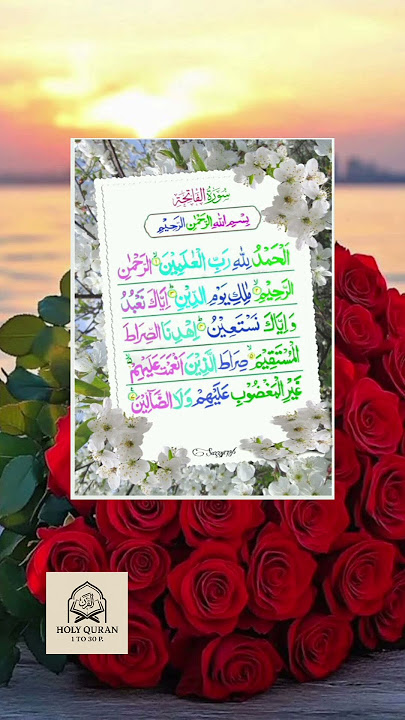 سُوْرَةُ الْفَاتِحَةِ
بِسْمِ اللهِ الرَّحْمٰنِ الرَّحِيْمِ
اَلْحَمْدُ لِلّٰهِ رَبِّ الْعٰلَمِيْنَ الرَّحْمٰنِ
الرَّحِيْمِ مٰلِكِ يَوْمِ الدِّيْنِ اِيَّاكَ نَعْبُدُ
وَ اِيَّاكَ نَسْتَعِيْنُ اِهْدِنَا الصِّرَاطَ
الْمُسْتَقِيْمَ صِرَاطَ الَّذِيْنَ اَنْعَمْتَ عَلَيْهِمْ
غَيْرِ الْمَغْضُوْبِ عَلَيْهِمْ وَلَا الضَّآلِّيْنَ
HOLY QURAN
1 TO 30 P.